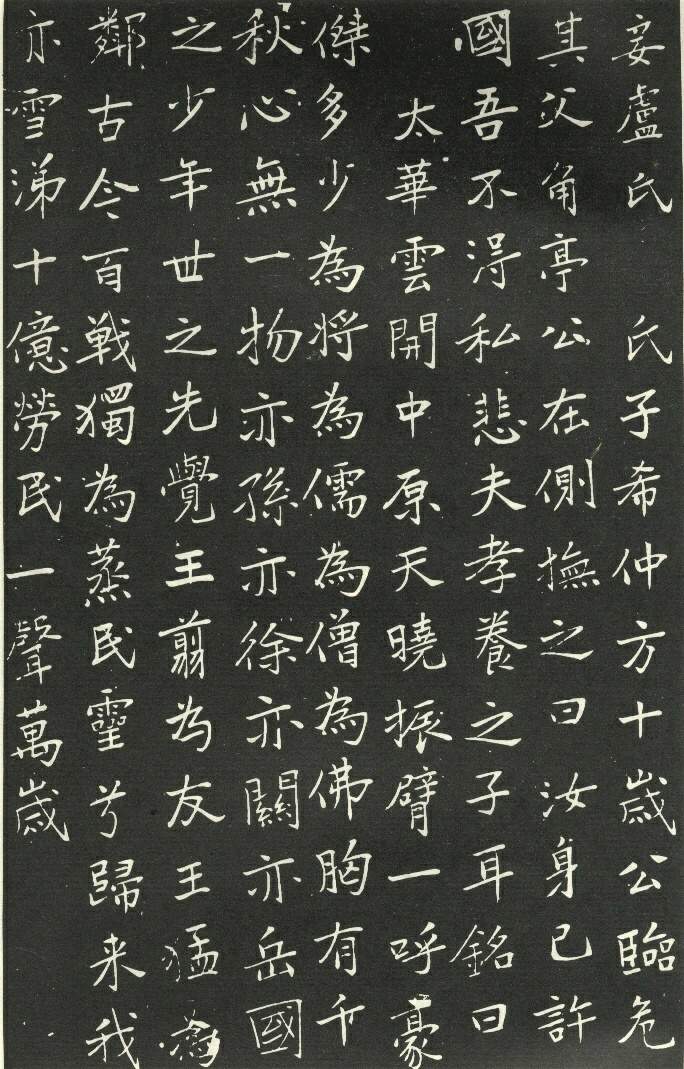 妾盧氏　氏子希仲方十歲公臨危
其父角亭公在側撫之曰汝身已許
國吾不淂私悲夫孝養之子耳銘曰
太華雲開中原天曉振臂一呼豪
傑多少為将為儒為僧為佛胸有千
秋心無一物亦孫亦徐亦關亦岳國
之少年世之先覺王翦为友王猛為
鄰古今百戦獨為蒸民靈兮歸来我
亦雪涕十億勞民一聲萬歲